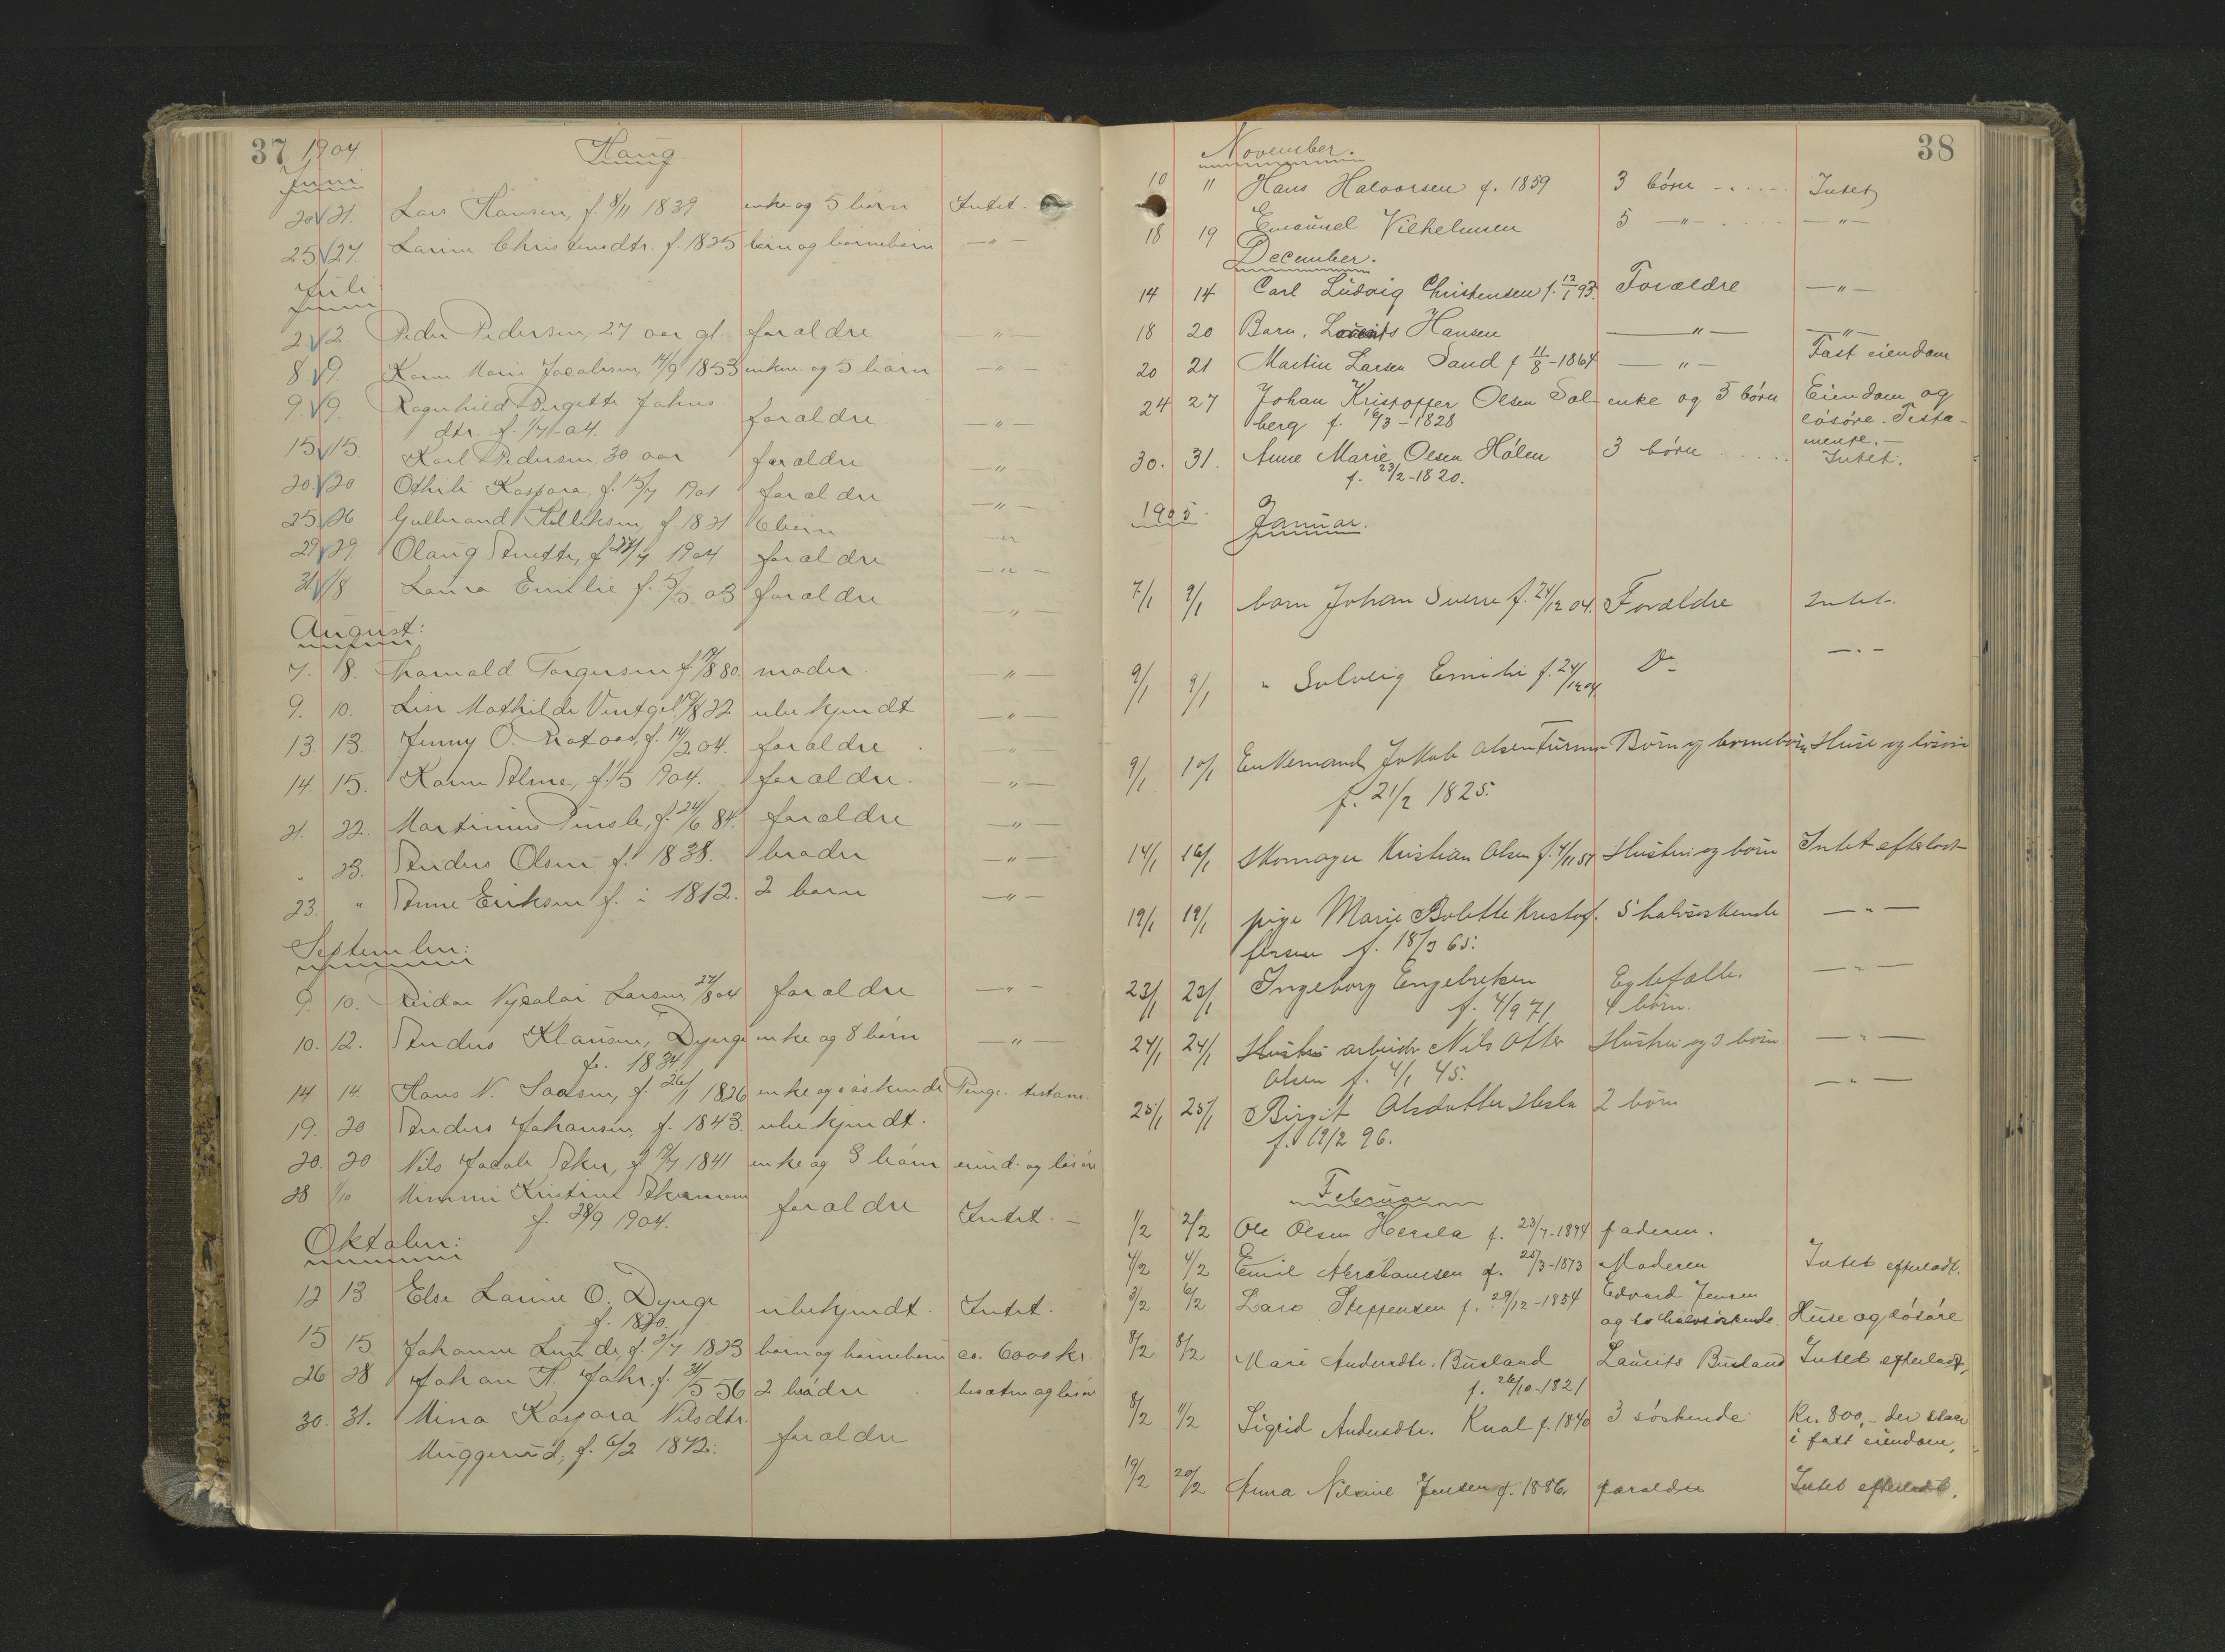 37 1904. Haug
Juni
20 21. Lars Hansen, f. 8/11 1839 enke og 5 børn Intet.
25. 27. Larine Christensdtr. f. 1825 børn og børnebørn —"—
Juli
2. 2. Peder Pedersen, 27 aar gl. forældre —"—
8. 9. Karen Marie Jacobsen, 14/9 1853 enkem. og 5 børn —"—
9. 9. Ragnhild Birgitte Johns-
dtr. f. 1/7 -04. forældre —"—
15 15. Karl Pedersen, 30 aar forældre —"—
20 20 Othili Kaspara, f. 15/7 1901 forældre —"—
25 26 Gulbrand Killiksen, f. 1821 6 børn —"—
29 29. Olaug Anette, f. 27/7 1904 forældre —"—
31 1/8 Laura Emilie f. 5/5 03 forældre —"—
August:
7. 8. Thorvald Torgersen f. 19/8 80. moder —"—
9. 10. Lise Mathilde 19/8 22 ubekjendt —"—
13. 13. Jenny O. f. 14/2 04. forældre —"—
14. 15. Karen Alma, f. 1/5 1904. forældre. —"—
21. 22. Martinius f. 24/6 84. forældre —"—
" 23. Anders Olsen f. 1838. broder —"—
23. " Anne Eriksen f. i 1812. 2 børn —"—
September:
9. 10. Reidar Larsen, 27/8 04 forældre —"—
10. 12. Anders Klausen, Dynge enke og 8 børn —"—
f. 1834.
14 14. Hans N. f. 26/1 1826 enke og søskende Penge. testam.
19. 20 Anders Johansen, f. 1843. ubekjendt.
20. 20 Nils Jacob Aker, f. 19/7 1841 enke og 3 børn eiend. og løsøre
28 1/10 Mimmi Kristine
f. 28/9 1904. forældre Intet. —
Oktober:
12 13 Else Larine O. Dynge ubekjendt. Intet.
f. 1820.
15 15 Johanne Lunde, f. 2/7 1823 børn og børnebørn ca. 6000 kr.
26 28 Johan A. f. 31/5 56 2 brødre . besætn og løsøre
30. 31. Mina Kaspara Nilsdtr.
Muggerud, f. 6/2 1872. forældre
38
November.
10 11 Hans Halvorsen f. 1859 3 børn - . . - Intet
18 19 Emanuel Vilhelmsen 5 —"— . . —"—
December.
14 14 Carl Ludvig Christensen f. 12/1 93. Forældre —"—
18 20 Barn. Laurits Hansen —"— —"—
20 21 Martin Larsen Sand f 11/8 - 1864 —"— Fast eiendom
24 27 Johan Kristoffer Olsen Sol- enke og 5 børn Eiendom og
berg f. 16/3 - 1828 løsøre. Testa-
mente. —
30. 31. Anne Marie Olsen Hólen 3 børn . . . . Intet.
f. 23/2 - 1820.
1905. Januar.
7/1 9/1 barn Johan Sverre f. 24/12 04. Forældre Intet.
9/1 9/1 " Solveig Emilie f. 24/12 04. Do —"—
9/1 10/1 Enkemand Jakob Olsen Børn og børnebørn Huse og løsøre
f. 21/2 1825.
14/1 16/1 Skomager Kristian Olsen f. 4/11 51 Hustru og børn Intet efterladt
19/1 19/1 pige Marie Bolette Kristof- 5 halvsøskende —"—
fersen f. 18/3 65.
23/1 23/1 Ingeborg Engebretsen Egtefælle. —"—
f. 4/9 71 4 børn.
24/1 24/1 arbeider Nils Otter Hustru og 3 børn —"—
Olsen f. 4/1 45.
25/1 25/1 Birgit Olsdatter 2 børn —"—
f. 19/2 96.
Februar
1/2 2/2 Ole Olsen Hersla f. 23/7 - 1894 faderen.
4/2 4/2 Emil Abrahamsen f. 25/3 - 1873 Moderen Intet efterladt.
3/2 6/2 Lars Steffensen f. 29/12 - 1854 Edvard Jensen
og to halvsøskende. Huse og løsøre
8/2 8/2 Mari Andersdtr. Busland Laurits Busland Intet efterladt,
f. 26/10 - 1821
8/2 11/2 Sigrid Andersdtr. Knal f. 1840 3 søskende Kr. 800,- der staar
i fast eiendom,
19/2 20/2 Anna Jensen f. 1886, forældre Intet efterladt.